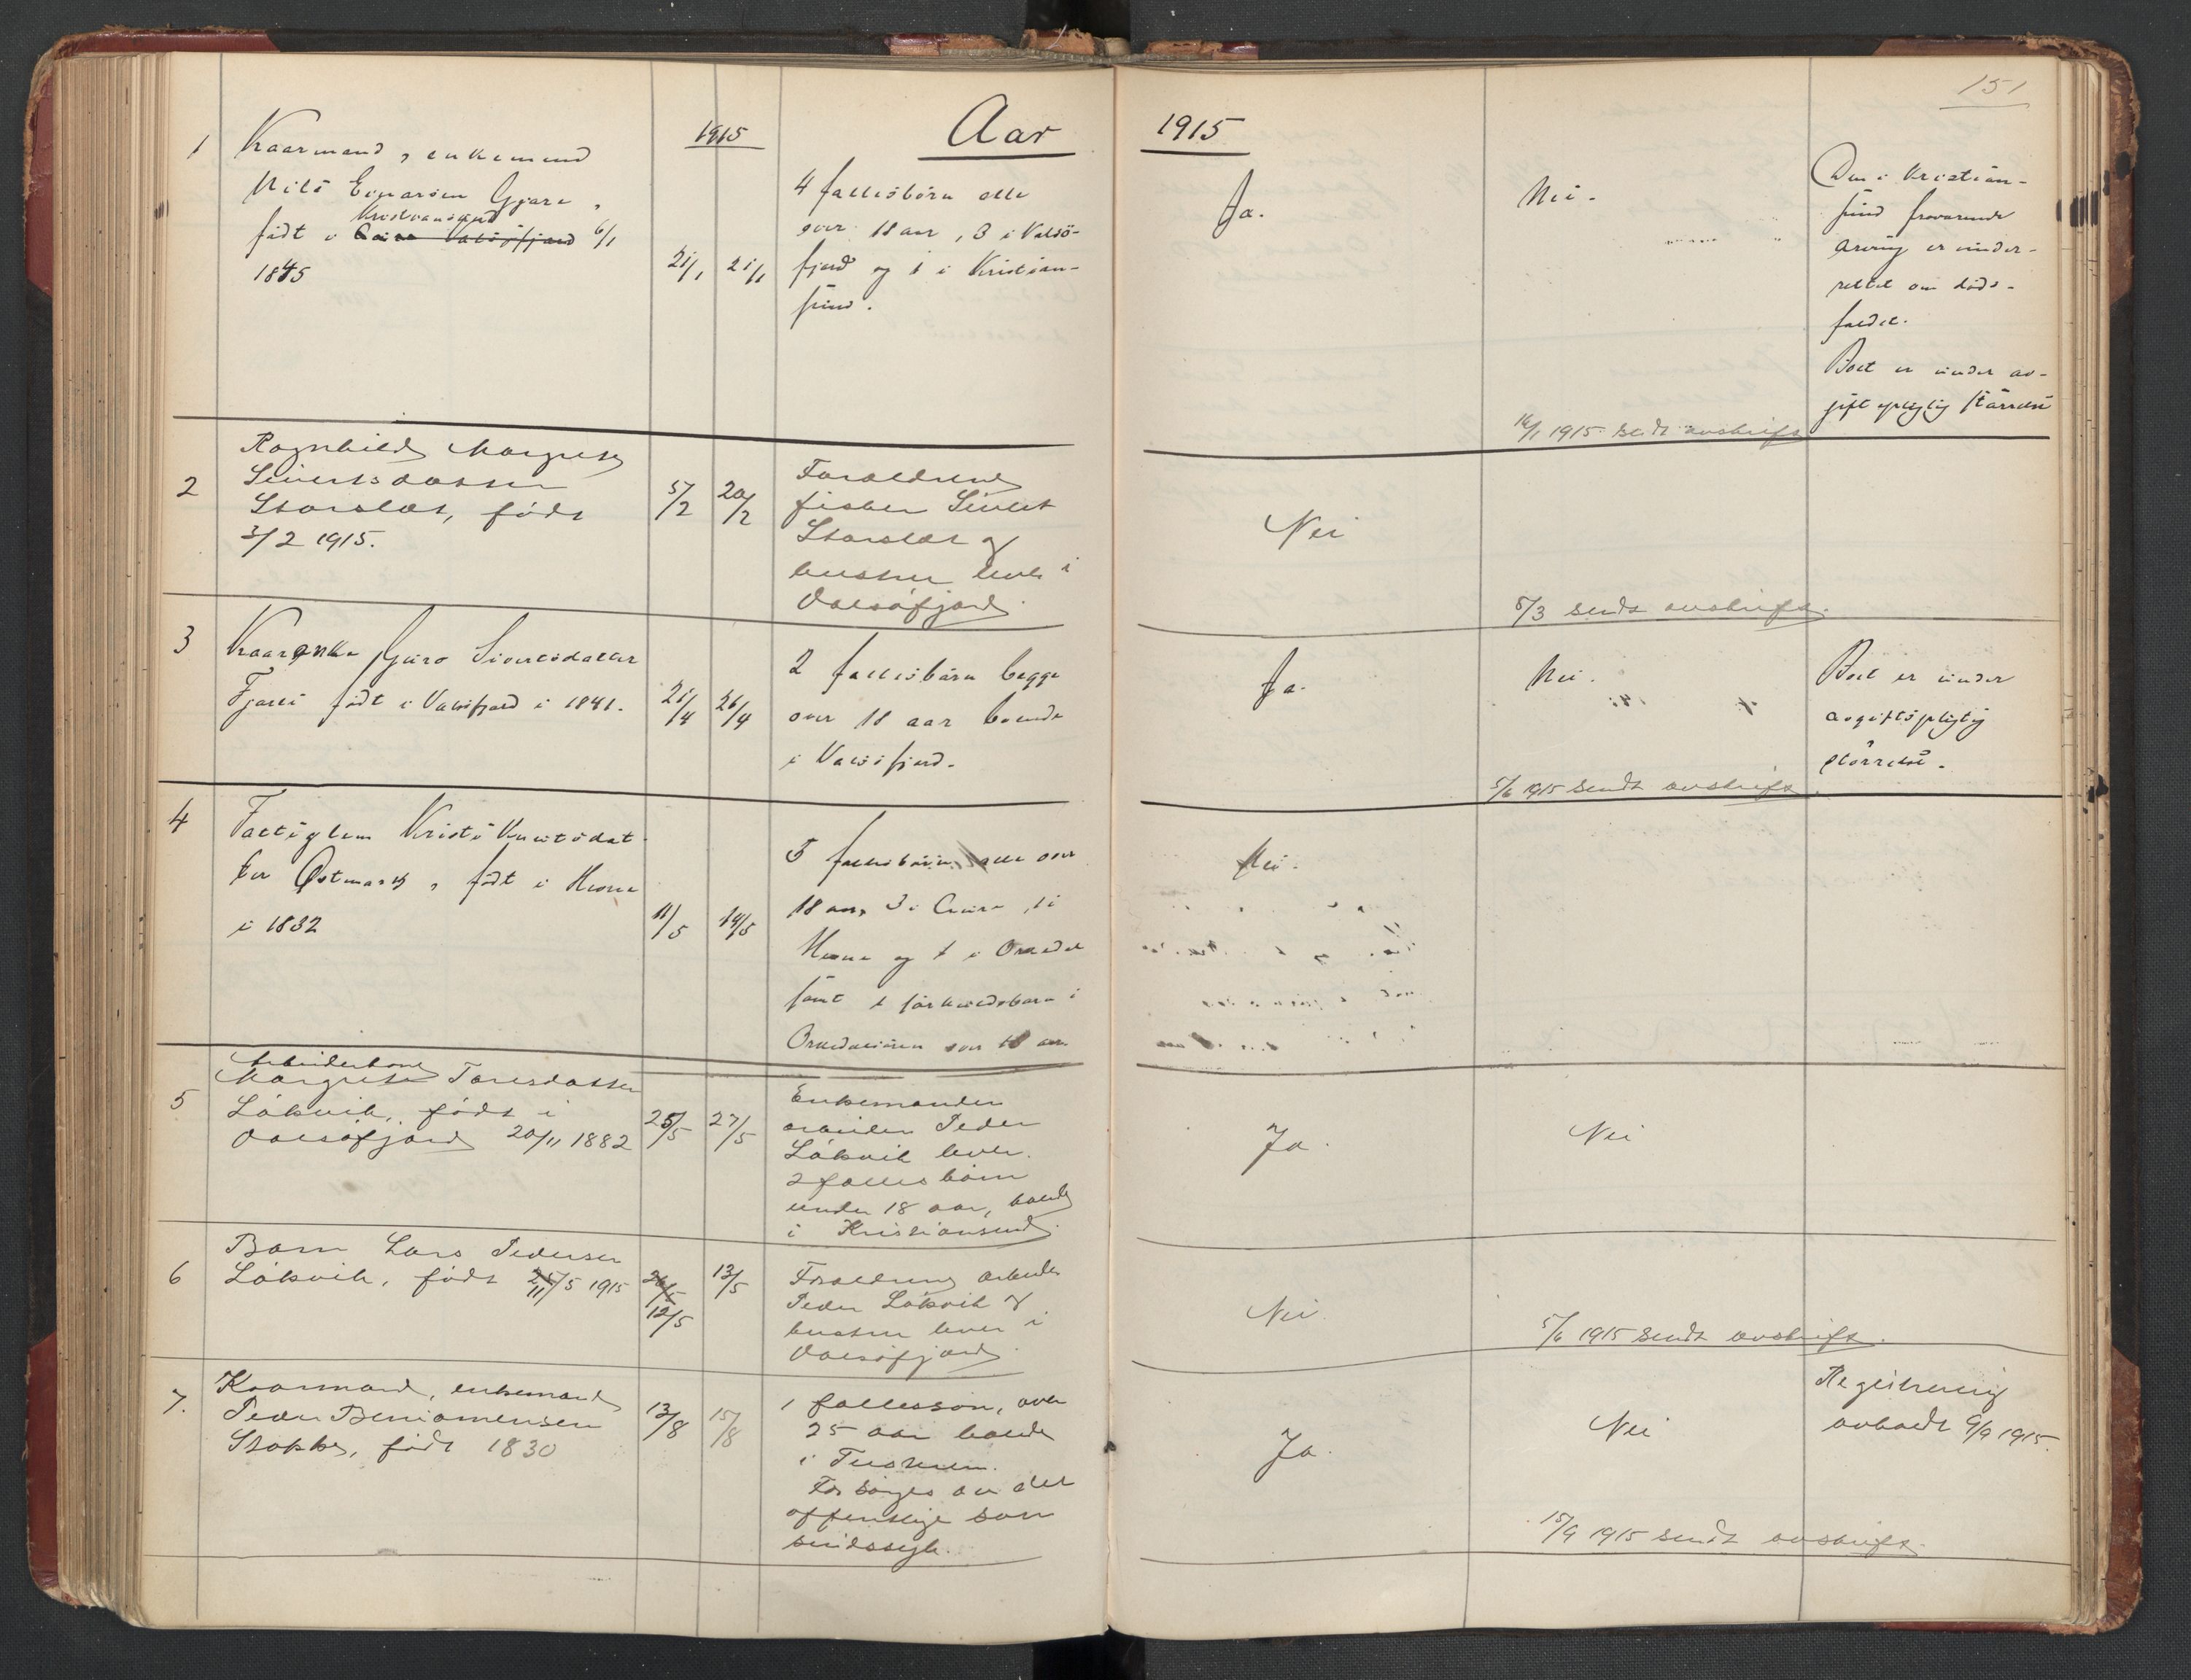 151
1915
Aar
1915
1
Kaarmand, enkemand
Nils Einarsen Gjære,
Kristiansund
født i Valsøfjord 6/1
1845
21/1
21/1
4 fællesbörn alle
over 18 aar, 3 i Valsö-
fjord og 1 i Kristian-
sund.
Ja.
Nei.
Den i Kristian-
sund fraværende
arving er under-
rettet om döds-
faldet.
Boet er under av-
giftspligtig störrelse
16/1 1915 sendt avskrift
2
Ragnhild Margrete
Sivertsdatter
Storslæt, født
3/2 1915.
5/2
20/2
Forældrene
fisker Sivert
Storslæt og
hustru lever i
Valsøfjord.
Nei
5/3 sendt avskrift.
3
Kaarenke Guro Sivertsdatter
Fjærli født i Valsöfjord i 1841.
21/4
26/4
2 fællesbörn begge
over 18 aar boende
i Valsöfjord.
Ja.
Nei.
Boet er under
avgiftspligtig
störrelse.
5/6 1915 sendt avskrift
4
Fattiglem Kristi Knutsdat-
ter Østmark, født i Hevne
i 1832
11/5
14/5
5 fællesbörn, alle over
18 aar, 3 i Aure, 1 i
Hevne og 1 i Orkedal
samt 1 særkuldsbarn i
Orkedalsören over 18 aar.
Nei.
5
Arbeiderkone
Margrete Toresdatter
Løkvik, født i
Valsøfjord 20/11 1882
25/5
27/5
Enkemanden
arbeider Peder
Løkvik lever.
2 fælles börn
under 18 aar, boende
i Kristiansund.
Ja.
Nei
6
Barn Lars Pedersen
Løkvik, født 11/5 1915
26/5
12/5
13/5
Forældrene arbeider
Peder Løkvik og
hustru lever i
Valsøfjord.
Nei.
5/6 1915 sendt avskrift.
7.
Kaarmand, enkemand
Peder Beniamensen
Stokke, født 1830
13/8
15/8
1 fællessøn, over
25 aar boende
i Tusteren.
Forsørges av det
offentlige som
sindssyk.
Ja.
Nei
Registrering
avholdt 9/9 1915.
15/9 1915 sendt avskrift.